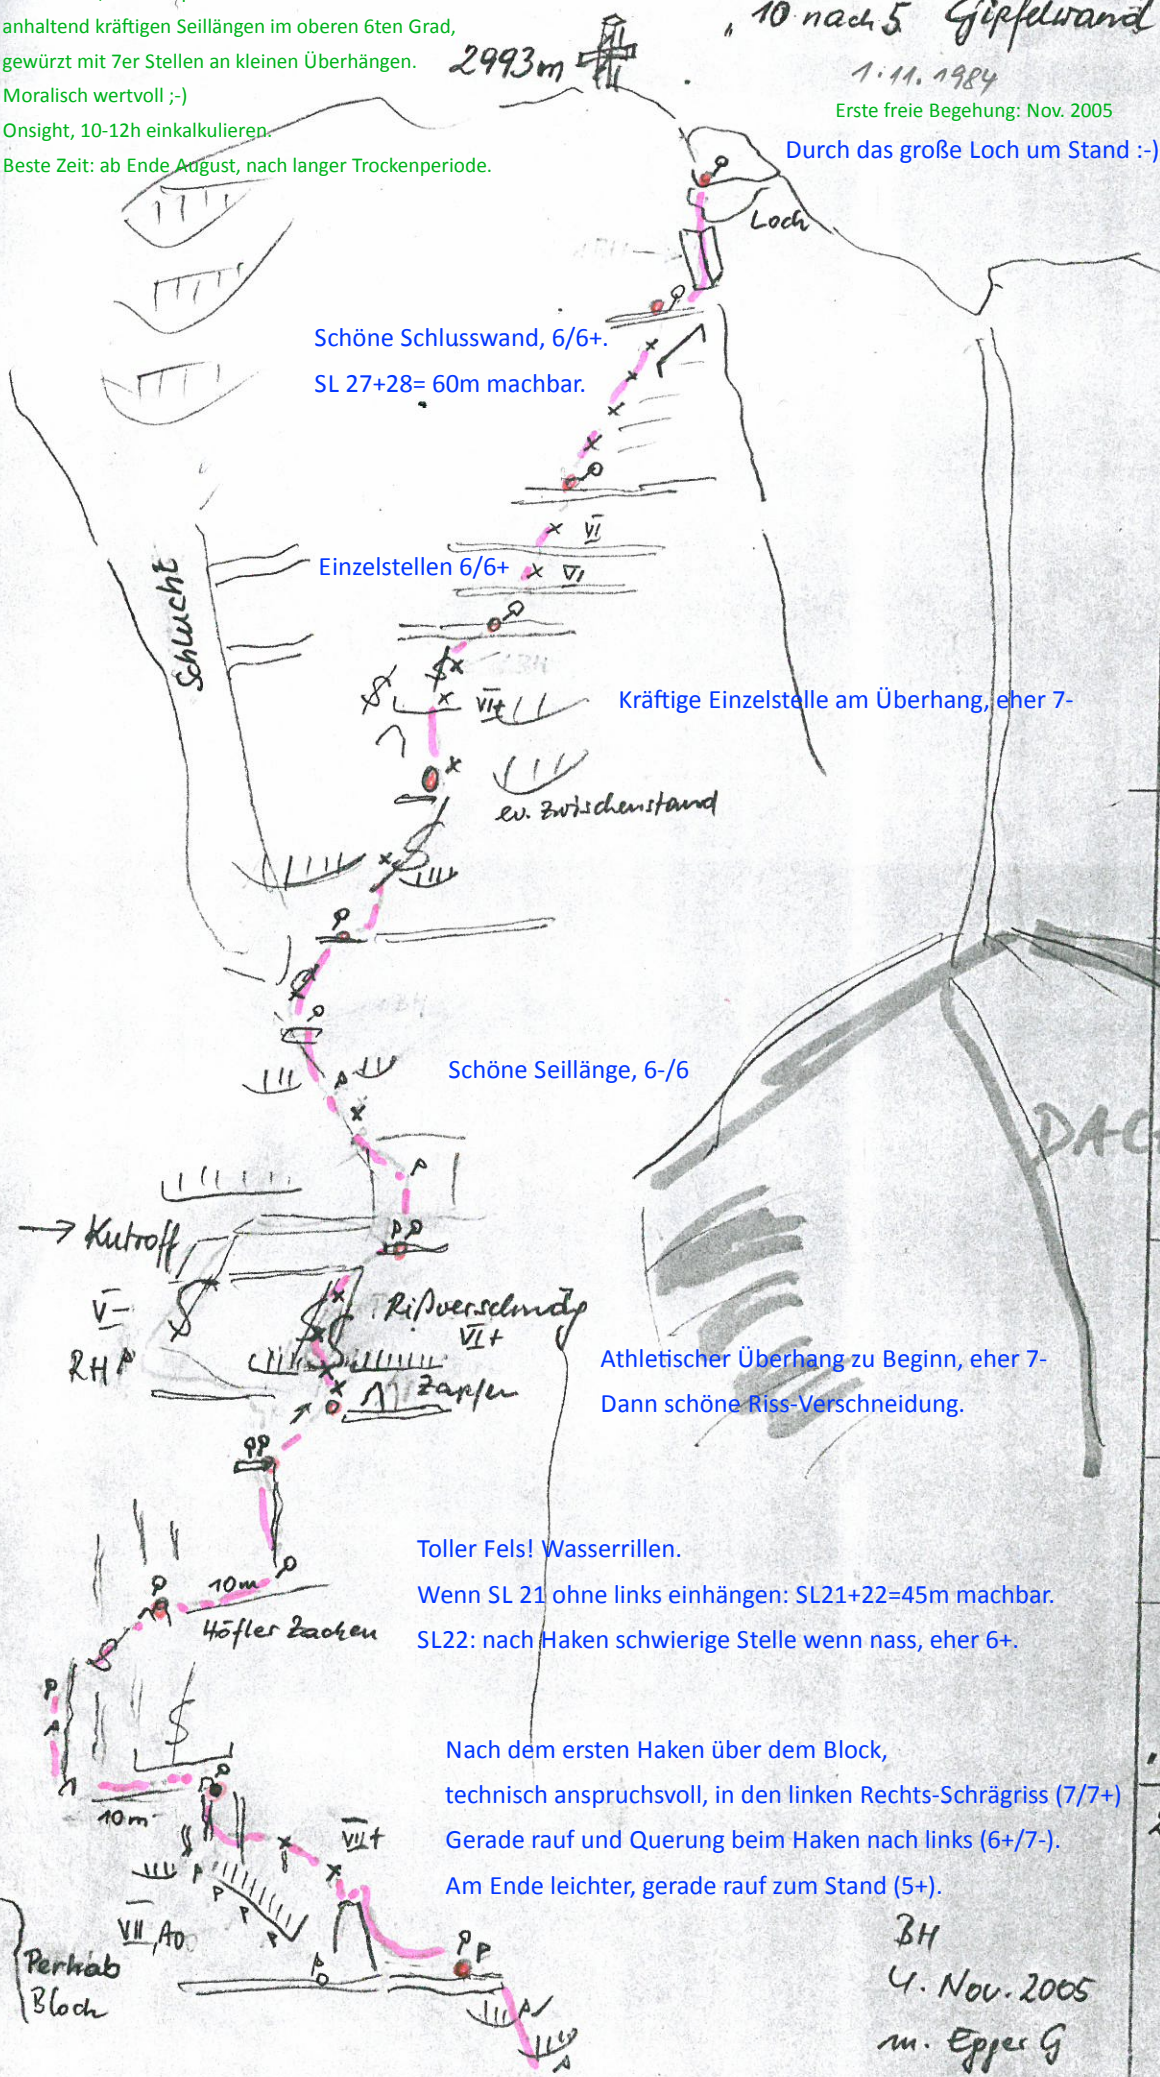 anhaltend kräftigen Seillängen im oberen 6ten Grad,
gewürzt mit 7er Stellen an kleinen Überhängen.
Moralisch wertvoll ;-)
Onsight, 10-12h einkalkulieren.
Beste Zeit: ab Ende August, nach langer Trockenperiode.
2993m
10 nach 5 Gipfelwand
1.11.1984
Erste freie Begehung: Nov. 2005
Durch das große Loch um Stand :-)
Loch
Schöne Schlusswand, 6/6+.
SL 27+28= 60m machbar.
VI
Einzelstellen 6/6+
VI
Schlucht
VI+
Kräftige Einzelstelle am Überhang, eher 7-
ev. Zwischenstand
Schöne Seillänge, 6-/6
DAC
→ Kutroff
V-
Rißverschndg
VI+
RH
Zapfen
Athletischer Überhang zu Beginn, eher 7-
Dann schöne Riss-Verschneidung.
Toller Fels! Wasserrillen.
Wenn SL 21 ohne links einhängen: SL21+22=45m machbar.
SL22: nach Haken schwierige Stelle wenn nass, eher 6+.
10m
Höfler Zacken
Nach dem ersten Haken über dem Block,
technisch anspruchsvoll, in den linken Rechts-Schrägriss (7/7+)
Gerade rauf und Querung beim Haken nach links (6+/7-).
Am Ende leichter, gerade rauf zum Stand (5+).
10m
VII+
VII, A0
Perhab
Block
BH
4. Nov. 2005
m. Egger G